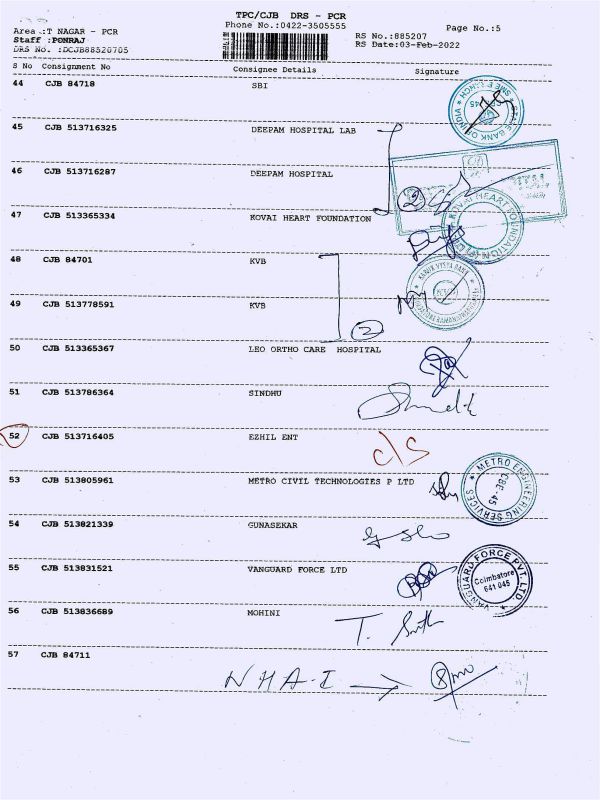 TPC/CJB DRS - PCR
Phone No.:0422-3505555
Page No.:5
Area :T NAGAR - PCR
Staff :PONRAJ
DRS No. :DCJB88520705
RS No.:885207
RS Date:03-Feb-2022
S No Consignment No Consignee Details Signature
44 CJB 84718 SBI
STATE BANK OF INDIA
45 CJB 513716325 DEEPAM HOSPITAL LAB
46 CJB 513716287 DEEPAM HOSPITAL
2
47 CJB 513365334 KOVAI HEART FOUNDATION
KOVAI HEART FOUNDATION
48 CJB 84701 KVB
49 CJB 513778591 KVB
2
50 CJB 513365367 LEO ORTHO CARE HOSPITAL
51 CJB 513786364 SINDHU
52 CJB 513716405 EZHIL ENT
d/s
53 CJB 513805961 METRO CIVIL TECHNOLOGIES P LTD
METRO ENGINEERING SERVICES
CBE-45
54 CJB 513821339 GUNASEKAR
55 CJB 513831521 VANGUARD FORCE LTD
VANGUARD FORCE PVT. LTD.
Coimbatore
641 045
56 CJB 513836689 MOHINI
57 CJB 84711
NHA-I